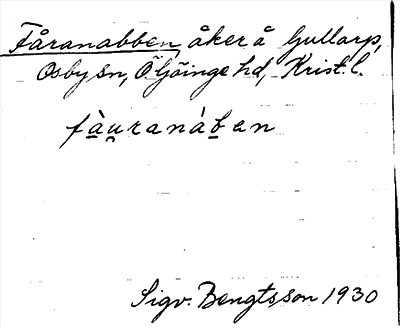 Fåranabben, åker å Gullarp,
Osby sn, Ö Göinge hd, Krist. l.
fàu̯ranàb̲en
Sigv. Bengtsson 1930